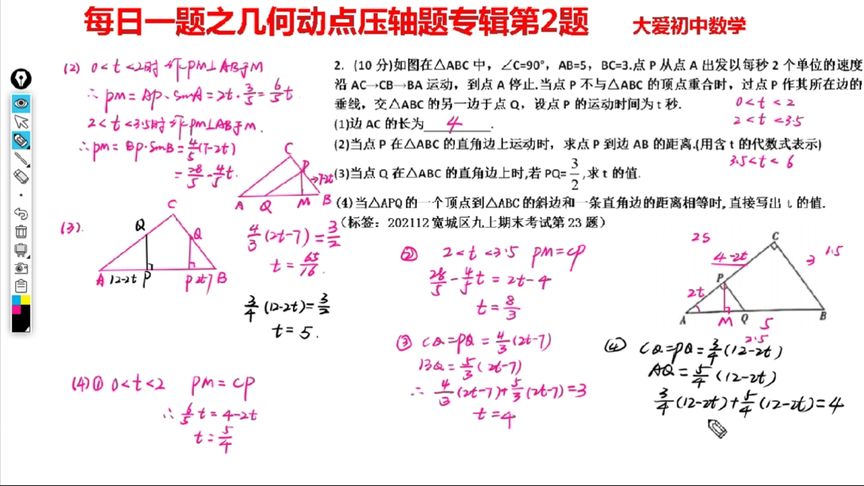 每日一题之几何动点压轴题专辑第2题
大爱初中数学
2. (10 分)如图在△ABC 中，∠C=90°，AB=5，BC=3.点 P 从点 A 出发以每秒 2 个单位的速度
沿 AC→CB→BA 运动，到点 A 停止.当点 P 不与△ABC 的顶点重合时，过点 P 作其所在边的
垂线，交△ABC 的另一边于点 Q，设点 P 的运动时间为 t 秒.
0<t<2
(1)边 AC 的长为 4 .
2<t<3.5
(2)当点 P 在△ABC 的直角边上运动时，求点 P 到边 AB 的距离.(用含 t 的代数式表示)
3.5<t<6
(3)当点 Q 在△ABC 的直角边上时,若 PQ=3/2,求 t 的值.
(4)当△APQ 的一个顶点到△ABC 的斜边和一条直角边的距离相等时, 直接写出 t 的值.
（标签：202112 宽城区九上期末考试第 23 题）
(2) 0<t<2时 作PM⊥AB于M
∴ PM=AP·sinA=2t·3/5=6/5t
2<t<3.5时 作PM⊥AB于M.
∴PM=BP·sinB=4/5(7-2t)
=28/5-4/5t.
C
P
7-2t
A Q M B
(3).
C
Q
Q
A 12-2t P P 2t-7 B
4/3(2t-7)=3/2
t=65/16.
3/4(12-2t)=3/2
t=5.
(4)① 0<t<2 PM=CP
∴ 6/5t=4-2t
t=5/4
② 2<t<3.5 PM=CP
28/5-4/5t=2t-4
t=8/3
③ CQ=PQ=4/3(2t-7)
BQ=5/3(2t-7)
∴ 4/3(2t-7)+5/3(2t-7)=3
t=4
2.5
C
4-2t
3
1.5
P
2t
A M Q B
5
2.5
④ CQ=PQ=3/4(12-2t)
AQ=5/4(12-2t)
3/4(12-2t)+5/4(12-2t)=4